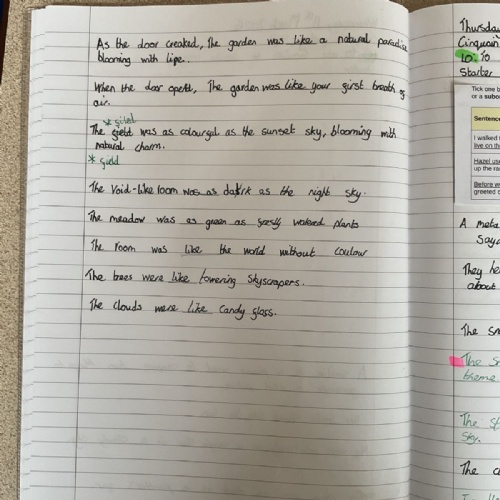 As the door creaked, The garden was like a natural paradise
blooming with life.
When the door opent, The garden was like your first breath of
air.
* gield
The giebt was as colourful as the sunset sky, blooming with
natural charm.
* gield
The Void-like room was as dark as the night sky.
The meadow was as green as freshly watered plants
The room was like the world without coulour
The trees were like towering skyscrapers.
The clouds were like candy gloss.
Thursday
Cinquain
LO: To
Starter
Tick one b
or a subor
Sentence
I walked t
live on th
Hazel use
up the ra
Before w
greeted b
A meta
Saya
They he
about
The sn
The s
theme
The s
sky.
The c